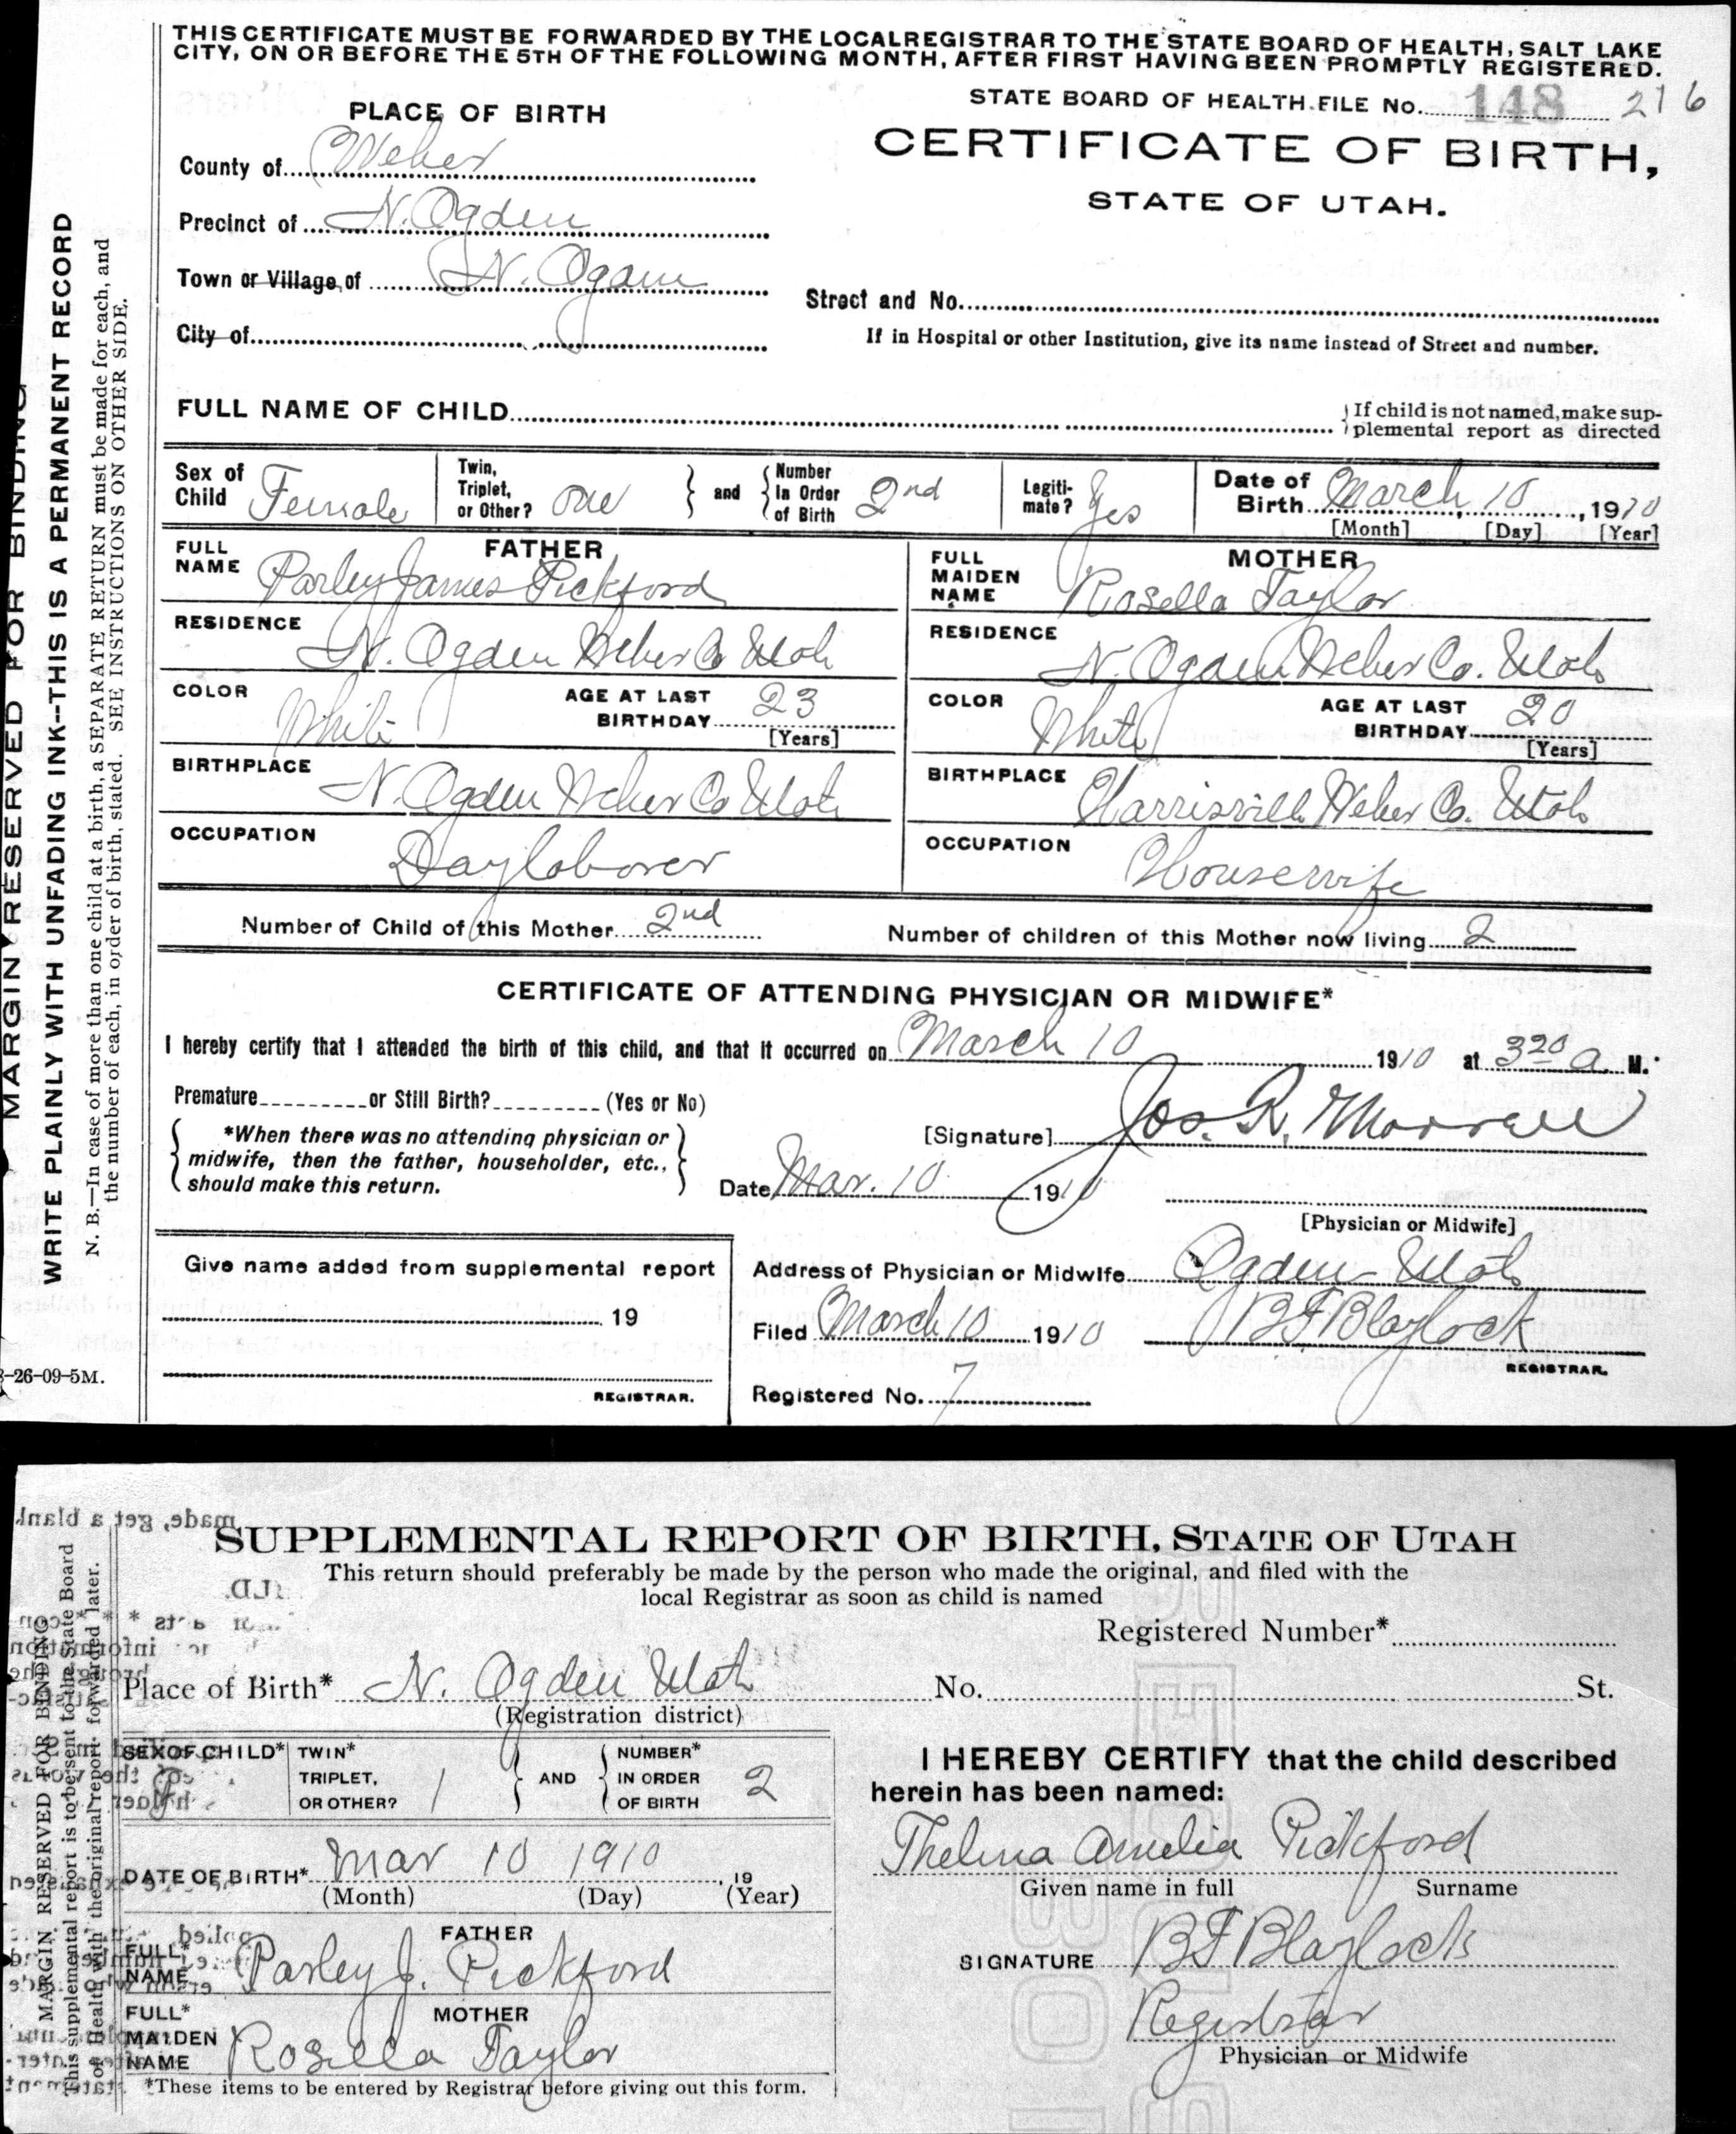 THIS CERTIFICATE MUST BE FORWARDED BY THE LOCAL REGISTRAR TO THE STATE BOARD OF HEALTH, SALT LAKE
CITY, ON OR BEFORE THE 5TH OF THE FOLLOWING MONTH, AFTER FIRST HAVING BEEN PROMPTLY REGISTERED.
STATE BOARD OF HEALTH FILE No. 148 216
PLACE OF BIRTH
CERTIFICATE OF BIRTH,
STATE OF UTAH.
County of Weber
Precinct of N. Ogden
Town or Village of N. Ogden
Street and No.
City of
If in Hospital or other Institution, give its name instead of Street and number.
FULL NAME OF CHILD
If child is not named, make sup-
plemental report as directed
Sex of Child Female
Twin, Triplet, or Other? one
and Number In Order of Birth 2nd
Legiti-mate? Yes
Date of Birth March, 10, 1910
[Month] [Day] [Year]
FATHER
FULL NAME Parley James Pickford
RESIDENCE N. Ogden Weber Co Utah
COLOR White AGE AT LAST BIRTHDAY 23
[Years]
BIRTHPLACE N. Ogden Weber Co Utah
OCCUPATION Day laborer
MOTHER
FULL MAIDEN NAME Rosella Taylor
RESIDENCE N. Ogden Weber Co. Utah
COLOR White AGE AT LAST BIRTHDAY 20
[Years]
BIRTHPLACE Harrisville Weber Co. Utah
OCCUPATION Housewife
Number of Child of this Mother 2nd
Number of children of this Mother now living 2
CERTIFICATE OF ATTENDING PHYSICIAN OR MIDWIFE*
I hereby certify that I attended the birth of this child, and that it occurred on March 10 1910 at 3 20 a. M.
Premature or Still Birth? (Yes or No)
*When there was no attending physician or
midwife, then the father, householder, etc.,
should make this return.
[Signature] Jos. R. Morrell
Date Mar. 10 1910
[Physician or Midwife]
Give name added from supplemental report
19
REGISTRAR.
Address of Physician or Midwife Ogden Utah
Filed March 10 1910 B F Blaylock
REGISTRAR.
Registered No. 7
MARGIN RESERVED FOR BINDING
WRITE PLAINLY WITH UNFADING INK--THIS IS A PERMANENT RECORD
N. B.—In case of more than one child at a birth, a SEPARATE RETURN must be made for each, and
the number of each, in order of birth, stated. SEE INSTRUCTIONS ON OTHER SIDE.
-26-09-5M.
SUPPLEMENTAL REPORT OF BIRTH, STATE OF UTAH
This return should preferably be made by the person who made the original, and filed with the
local Registrar as soon as child is named
Registered Number*
Place of Birth* N. Ogden Utah
No. St.
(Registration district)
SEX OF CHILD* f
TWIN* TRIPLET, OR OTHER? 1
AND NUMBER* IN ORDER OF BIRTH 2
DATE OF BIRTH* Mar 10 1910, 19
(Month) (Day) (Year)
FATHER
FULL* NAME Parley J. Pickford
MOTHER
FULL* MAIDEN NAME Rosella Taylor
*These items to be entered by Registrar before giving out this form.
I HEREBY CERTIFY that the child described
herein has been named:
Thelma Amelia Pickford
Given name in full Surname
SIGNATURE B F Blaylock
Registrar
Physician or Midwife
MARGIN RESERVED FOR BINDING
This supplemental report is to be sent to the State Board
of Health with the original report forwarded later.